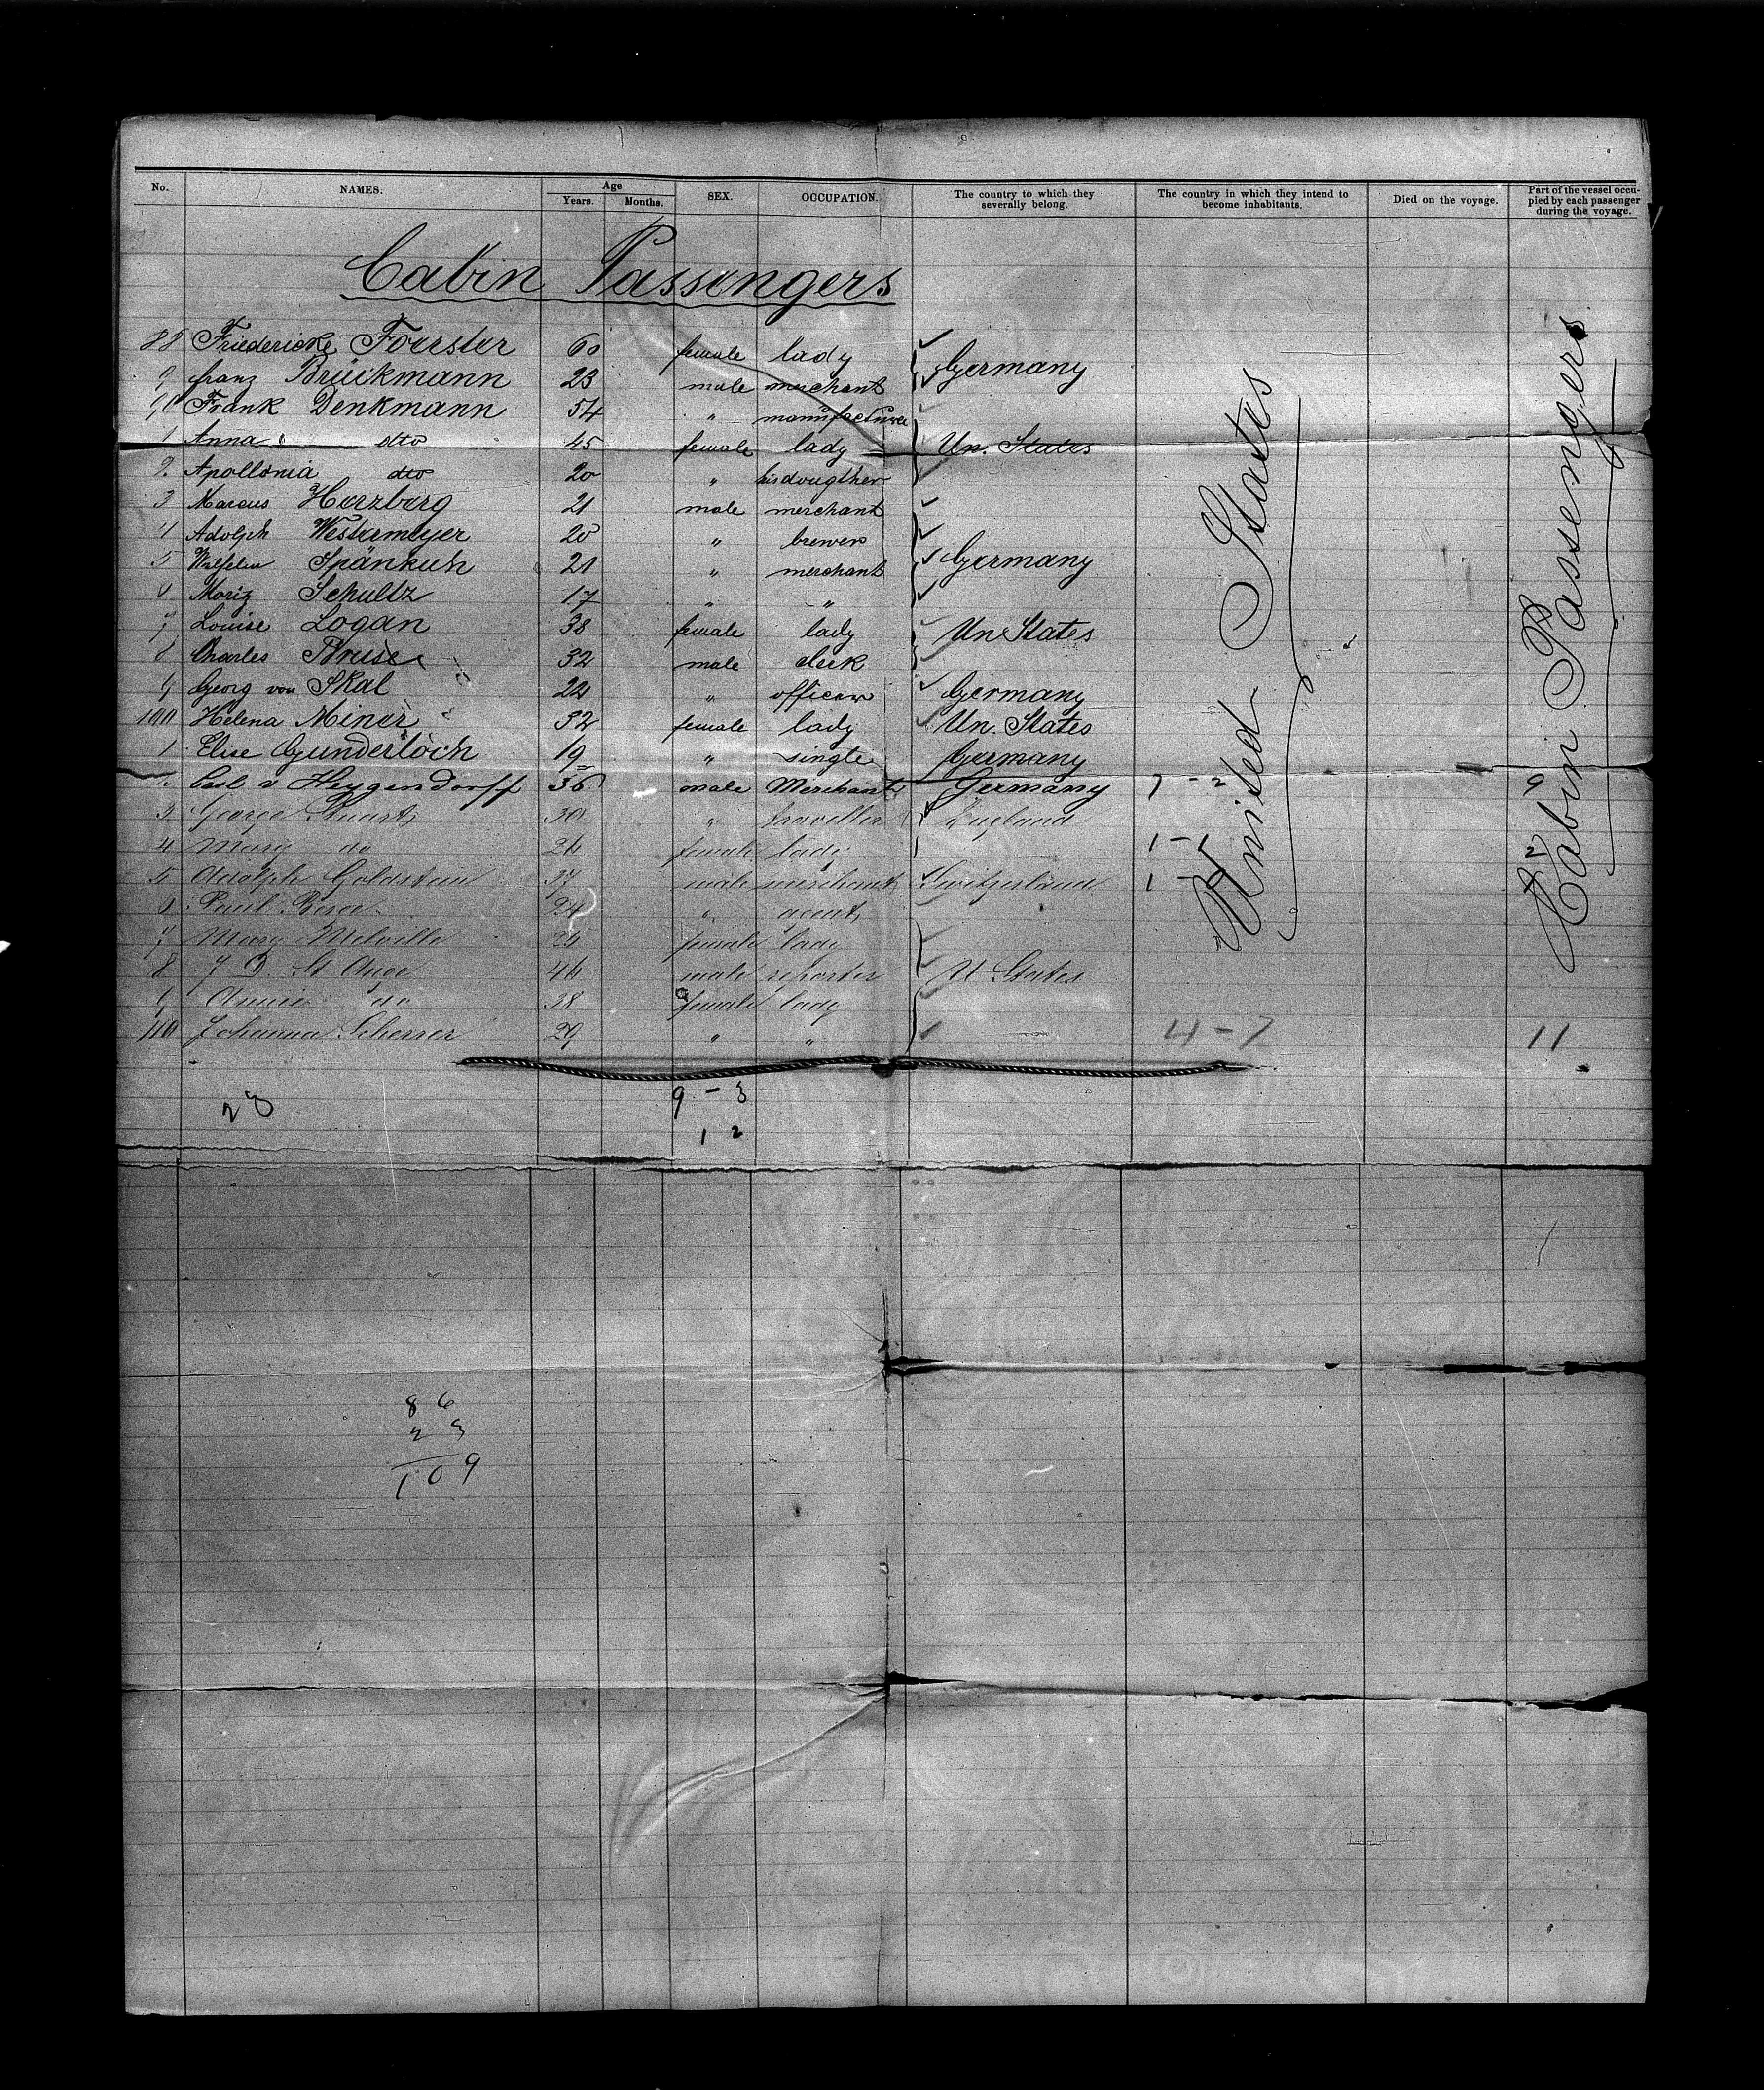 No. NAMES. Age Years. Months. SEX. OCCUPATION. The country to which they severally belong. The country in which they intend to become inhabitants. Died on the voyage. Part of the vessel occupied by each passenger during the voyage.
Cabin Passengers
88 Friedericke Foerster 60 female lady
9 franz Brückmann 23 male merchant Germany
90 Frank Denkmann 54 " manufacturer
1 Anna dto 45 female lady Un. States
2. Apollonia dto 20 " his dougther
3 Marcus Herzberg 21 male merchant
4 Adolph Westermeyer 20 " brewer
5 Spänkuch 21 " merchant Germany
6 Moriz Schultz 17 " "
7 Louise Logan 38 female lady Un States
8 Charles Bruse 32 male clerk
9 Georg von Skal 24 " officer Germany
100 Helena Miner 32 female lady Un. States
1. Elise Gunderloch 19 " single Germany
2. Carl v Heygendorff 36 male Merchant Germany 7 - 2 9
3 George Stuart 30 " traveller England
4 Mary do 26 female lady 1 - 1 2
5 Adolph Goldstein 37 male merchant Switzerland 1
6 Paul 24 " agent
7 Mary Melville 26 female lady
8 St Ange 46 male reporter U States
9 Annie do 38 female lady
110 Johanna Scherrer 29 " " 4 - 7 11
United States
Cabin Passengers
9 - 3
23
1 2
86
23
109